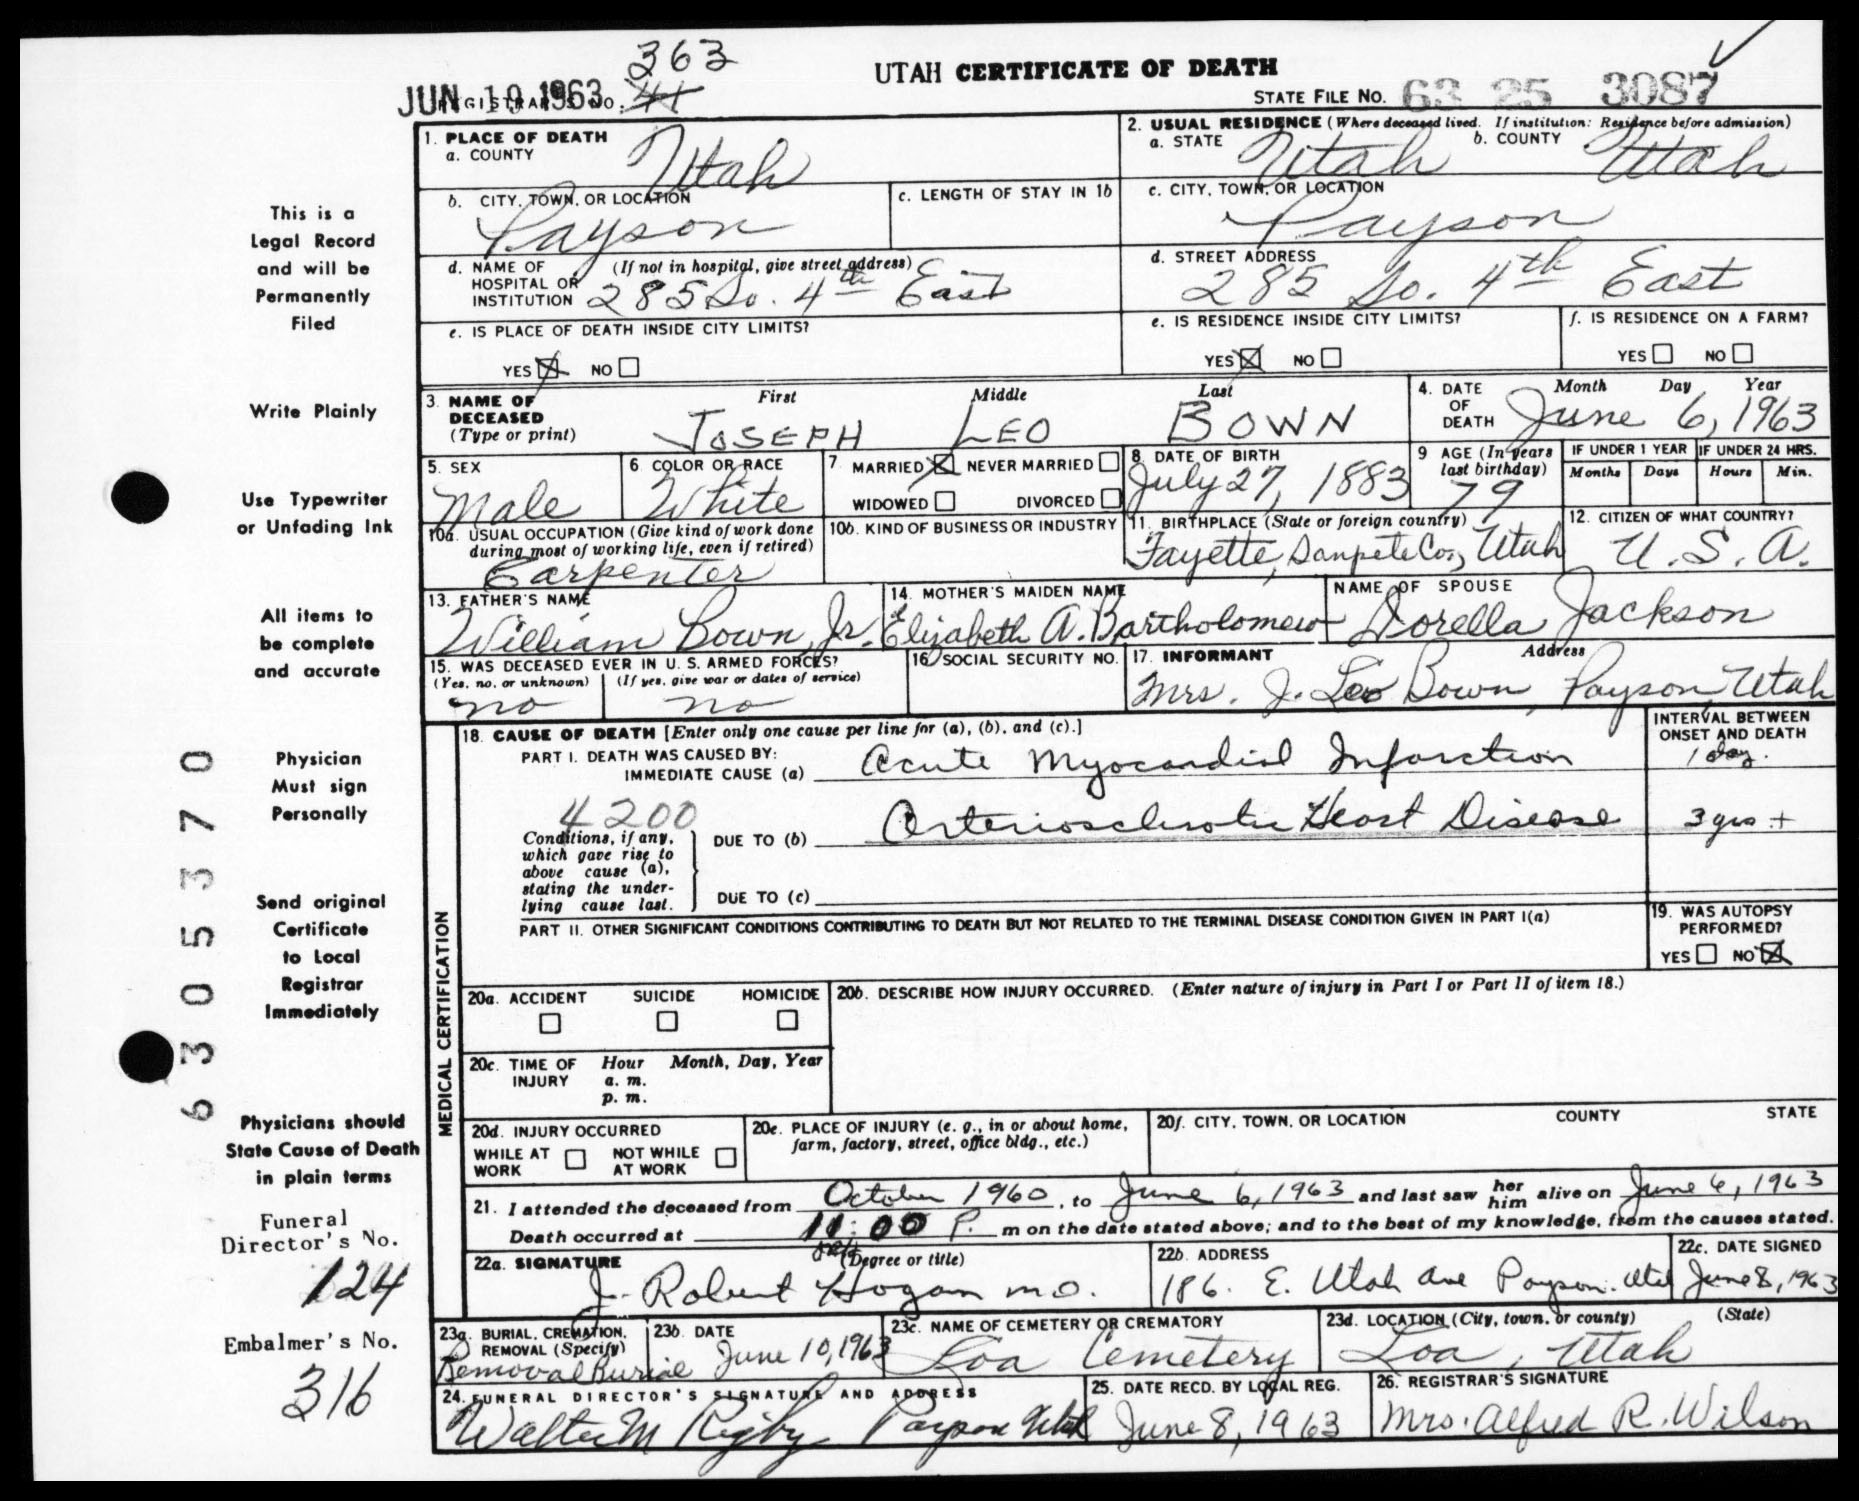 363
UTAH CERTIFICATE OF DEATH
JUN 10 1963 REGISTRAR'S NO. 41
STATE FILE NO. 63 25 3087
1. PLACE OF DEATH
a. COUNTY Utah
2. USUAL RESIDENCE (Where deceased lived. If institution: Residence before admission)
a. STATE Utah b. COUNTY Utah
b. CITY, TOWN, OR LOCATION Payson
c. LENGTH OF STAY IN 1b
c. CITY, TOWN, OR LOCATION Payson
d. NAME OF HOSPITAL OR INSTITUTION (If not in hospital, give street address) 285 So. 4th East
d. STREET ADDRESS 285 So. 4th East
e. IS PLACE OF DEATH INSIDE CITY LIMITS?
YES NO
e. IS RESIDENCE INSIDE CITY LIMITS?
YES NO
f. IS RESIDENCE ON A FARM?
YES NO
3. NAME OF DECEASED (Type or print)
First Middle Last
JOSEPH LEO BOWN
4. DATE OF DEATH
Month Day Year
June 6, 1963
5. SEX Male
6. COLOR OR RACE White
7. MARRIED NEVER MARRIED
WIDOWED DIVORCED
8. DATE OF BIRTH July 27, 1883
9 AGE (In years last birthday) 79
IF UNDER 1 YEAR Months Days
IF UNDER 24 HRS. Hours Min.
10a. USUAL OCCUPATION (Give kind of work done during most of working life, even if retired) Carpenter
10b. KIND OF BUSINESS OR INDUSTRY
11. BIRTHPLACE (State or foreign country) Fayette, Sanpete Co., Utah
12. CITIZEN OF WHAT COUNTRY? U.S.A.
13. FATHER'S NAME William Bown, Jr.
14. MOTHER'S MAIDEN NAME Elizabeth A. Bartholomew
NAME OF SPOUSE Dorella Jackson
15. WAS DECEASED EVER IN U. S. ARMED FORCES?
(Yes, no, or unknown) (If yes, give war or dates of service)
no no
16. SOCIAL SECURITY NO.
17. INFORMANT Address
Mrs. J. Leo Bown, Payson, Utah
MEDICAL CERTIFICATION
18. CAUSE OF DEATH [Enter only one cause per line for (a), (b), and (c).]
INTERVAL BETWEEN ONSET AND DEATH
PART I. DEATH WAS CAUSED BY:
IMMEDIATE CAUSE (a) Acute Myocardial Infarction 1 day.
4200
Conditions, if any, which gave rise to above cause (a), stating the underlying cause last.
DUE TO (b) Arteriosclerotic Heart Disease 3 yrs +
DUE TO (c)
PART II. OTHER SIGNIFICANT CONDITIONS CONTRIBUTING TO DEATH BUT NOT RELATED TO THE TERMINAL DISEASE CONDITION GIVEN IN PART I(a)
19. WAS AUTOPSY PERFORMED?
YES NO
20a. ACCIDENT SUICIDE HOMICIDE
20b. DESCRIBE HOW INJURY OCCURRED. (Enter nature of injury in Part I or Part II of item 18.)
20c. TIME OF INJURY Hour Month, Day, Year
a. m.
p. m.
20d. INJURY OCCURRED
WHILE AT WORK NOT WHILE AT WORK
20e. PLACE OF INJURY (e. g., in or about home, farm, factory, street, office bldg., etc.)
20f. CITY, TOWN, OR LOCATION COUNTY STATE
21. I attended the deceased from October 1960, to June 6, 1963 and last saw her him alive on June 6, 1963
Death occurred at 11:00 P. m on the date stated above; and to the best of my knowledge, from the causes stated.
22a. SIGNATURE (Degree or title)
J. Robert Hogan M.D.
22b. ADDRESS 186. E. Utah Ave Payson. Utah
22c. DATE SIGNED June 8, 1963
23a. BURIAL, CREMATION, REMOVAL (Specify) Removal Burial
23b. DATE June 10, 1963
23c. NAME OF CEMETERY OR CREMATORY Loa Cemetery
23d. LOCATION (City, town, or county) (State) Loa, Utah
24. FUNERAL DIRECTOR'S SIGNATURE AND ADDRESS
Walter M Rigby Payson Utah
25. DATE RECD. BY LOCAL REG. June 8, 1963
26. REGISTRAR'S SIGNATURE Mrs. Alfred R. Wilson
This is a
Legal Record
and will be
Permanently
Filed
Write Plainly
Use Typewriter
or Unfading Ink
All items to
be complete
and accurate
Physician
Must sign
Personally
Send original
Certificate
to Local
Registrar
Immediately
Physicians should
State Cause of Death
in plain terms
Funeral
Director's No.
124
Embalmer's No.
316
6305370